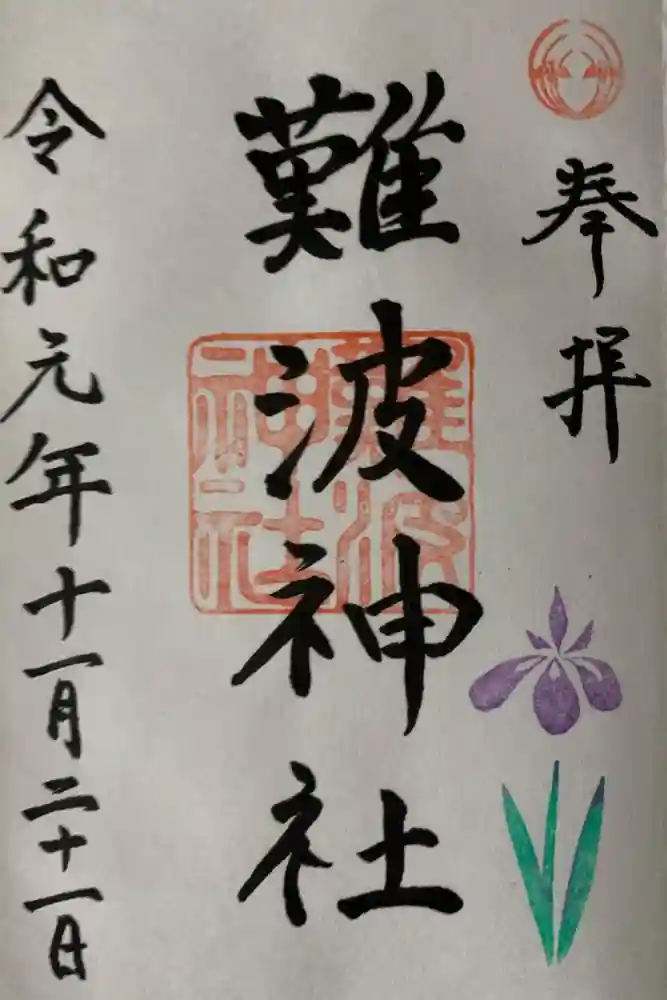 奉拝
難波神社
難波神社
令和元年十一月二十一日